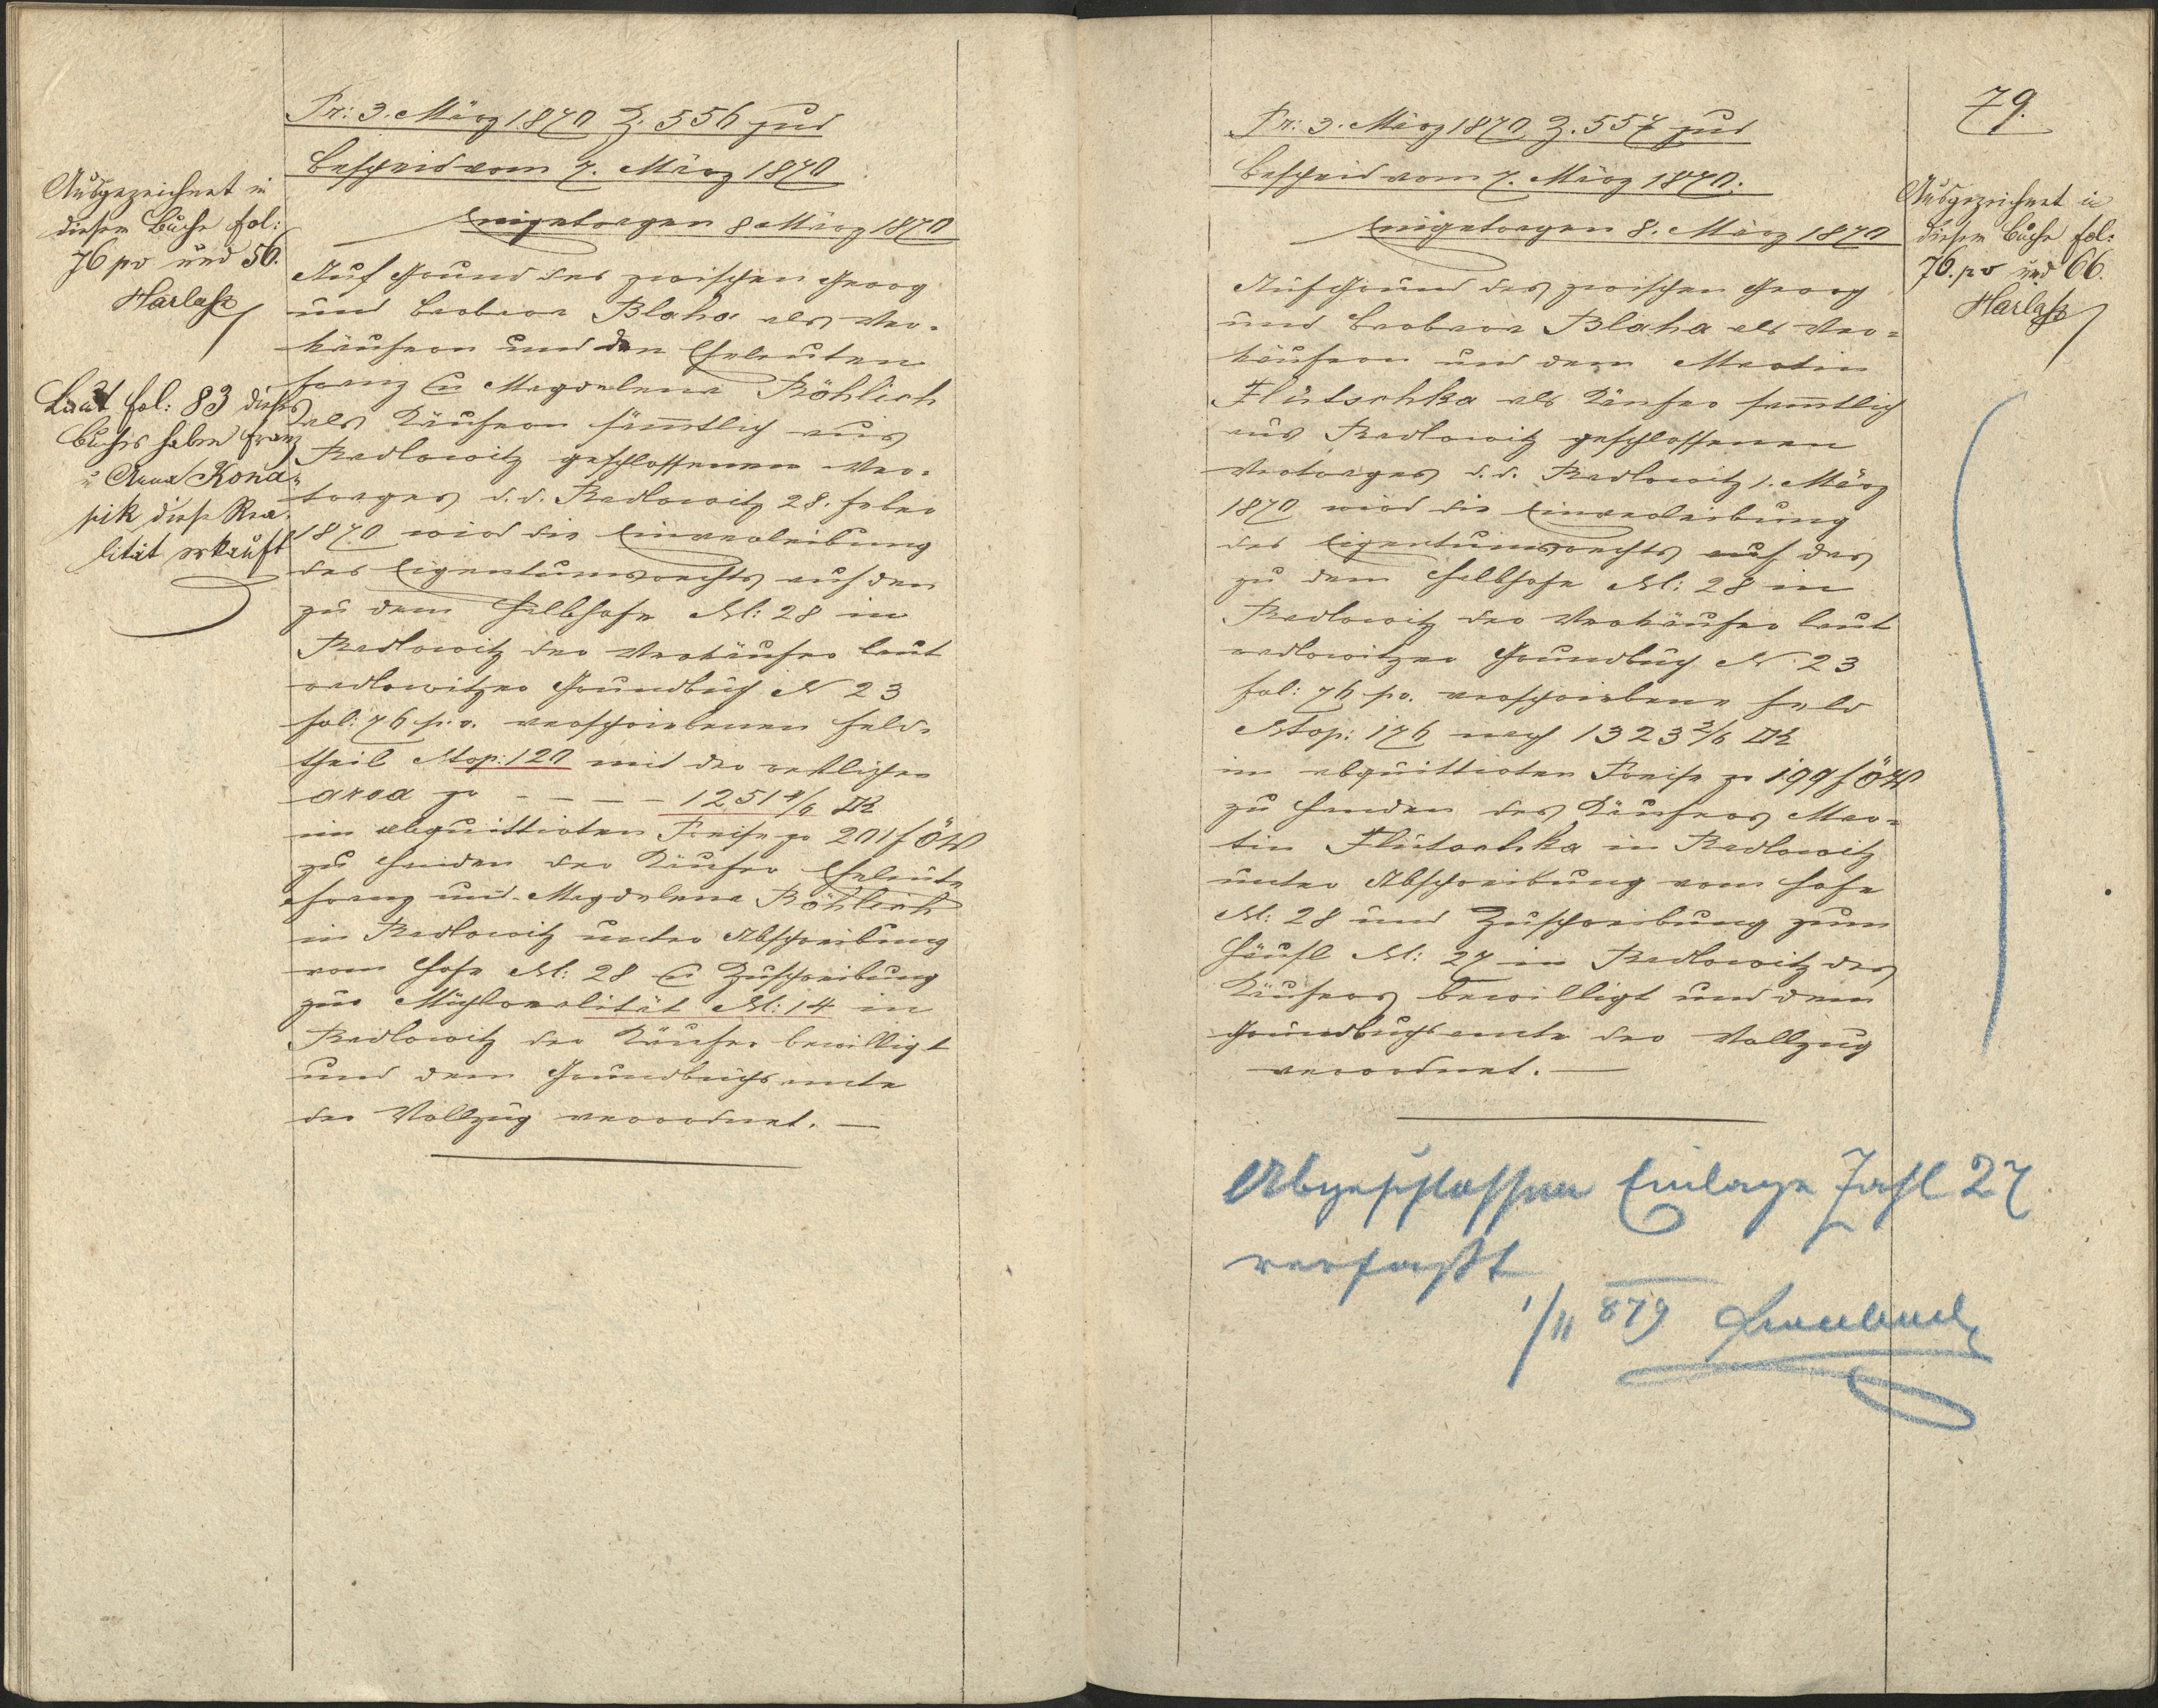 Pr: 3. März 1870 Z. 556 jud
Bescheid vom 7. März 1870
Eingetragen 8 März 1870
Auf Grund des zwischen Georg
und Barbara Blaha als Ver-
käufern und den Eheleuten
Franz & Magdalena Böhlich
als Käufern sämmtlich aus
Radlowitz geschlossenen Ver-
trages d. d. Radlowitz 28. Feber
1870 wird die Einverleibung
des Eigentumsrechts auf den
zu dem Halbhofe N: 28 in
Radlowitz der Verkäufer laut
radlowitzer Grundbuch N 23
fol: 76 p. v. verschriebenen Feld-
theil Ntop: 120 mit der restlichen
area zu - - - - 1251 4/6 □K
im abquittirten Preise zu 201 f ÖW
zu Handen der Käufer Eheleute
Franz und Magdalena Böhlich
in Radlowitz unter Abschreibung
vom Hofe N: 28 & Zuschreibung
zur Mühlrealität N: 14 in
Radlowitz der Käufer bewilligt
und dem Grundbuchsamte
der Vollzug verordnet. —
Ausgezeichnet in
diesem Buche fol:
76 pv und 56.
Harlass
Laut fol: 83 dieses
Buches haben Franz
u Anna Kona-
pik diese Rea-
lität erkauft
79.
Pr: 3. März 1870 Z. 557 jud
Bescheid vom 7. März 1870.
Eingetragen 8. März 1870
Auf Grund des zwischen Georg
und Barbara Blaha als Ver-
käufern und dem Martin
Flütschka als Käufer sammtlich
aus Radlowitz geschlossenen
Vertrages d. d. Radlowitz 1. März
1870 wird die Einverleibung
des Eigentumsrechts auf das
zu dem Halbhofe N: 28 in
Radlowitz der Verkäufer laut
radlowitzer Grundbuch N 23
fol: 76 pv. verschriebene Feld
Ntop: 176 mit 1323 2/6 □K
im abquittirten Preise zu 199 f ÖW
zu Handen des Käufers Mar-
tin Flütschka in Radlowitz
unter Abschreibung vom Hofe
N: 28 und Zuschreibung zum
Häusl N: 27 in Radlowitz des
Käufers bewilligt und dem
Grundbuchsamte der Vollzug
verordnet. —
Ausgezeichnet in
diesem Buche fol:
76. pv und 66.
Harlass
Abgeschlossen Einlage Zahl 27
verfaßt
1/11 879